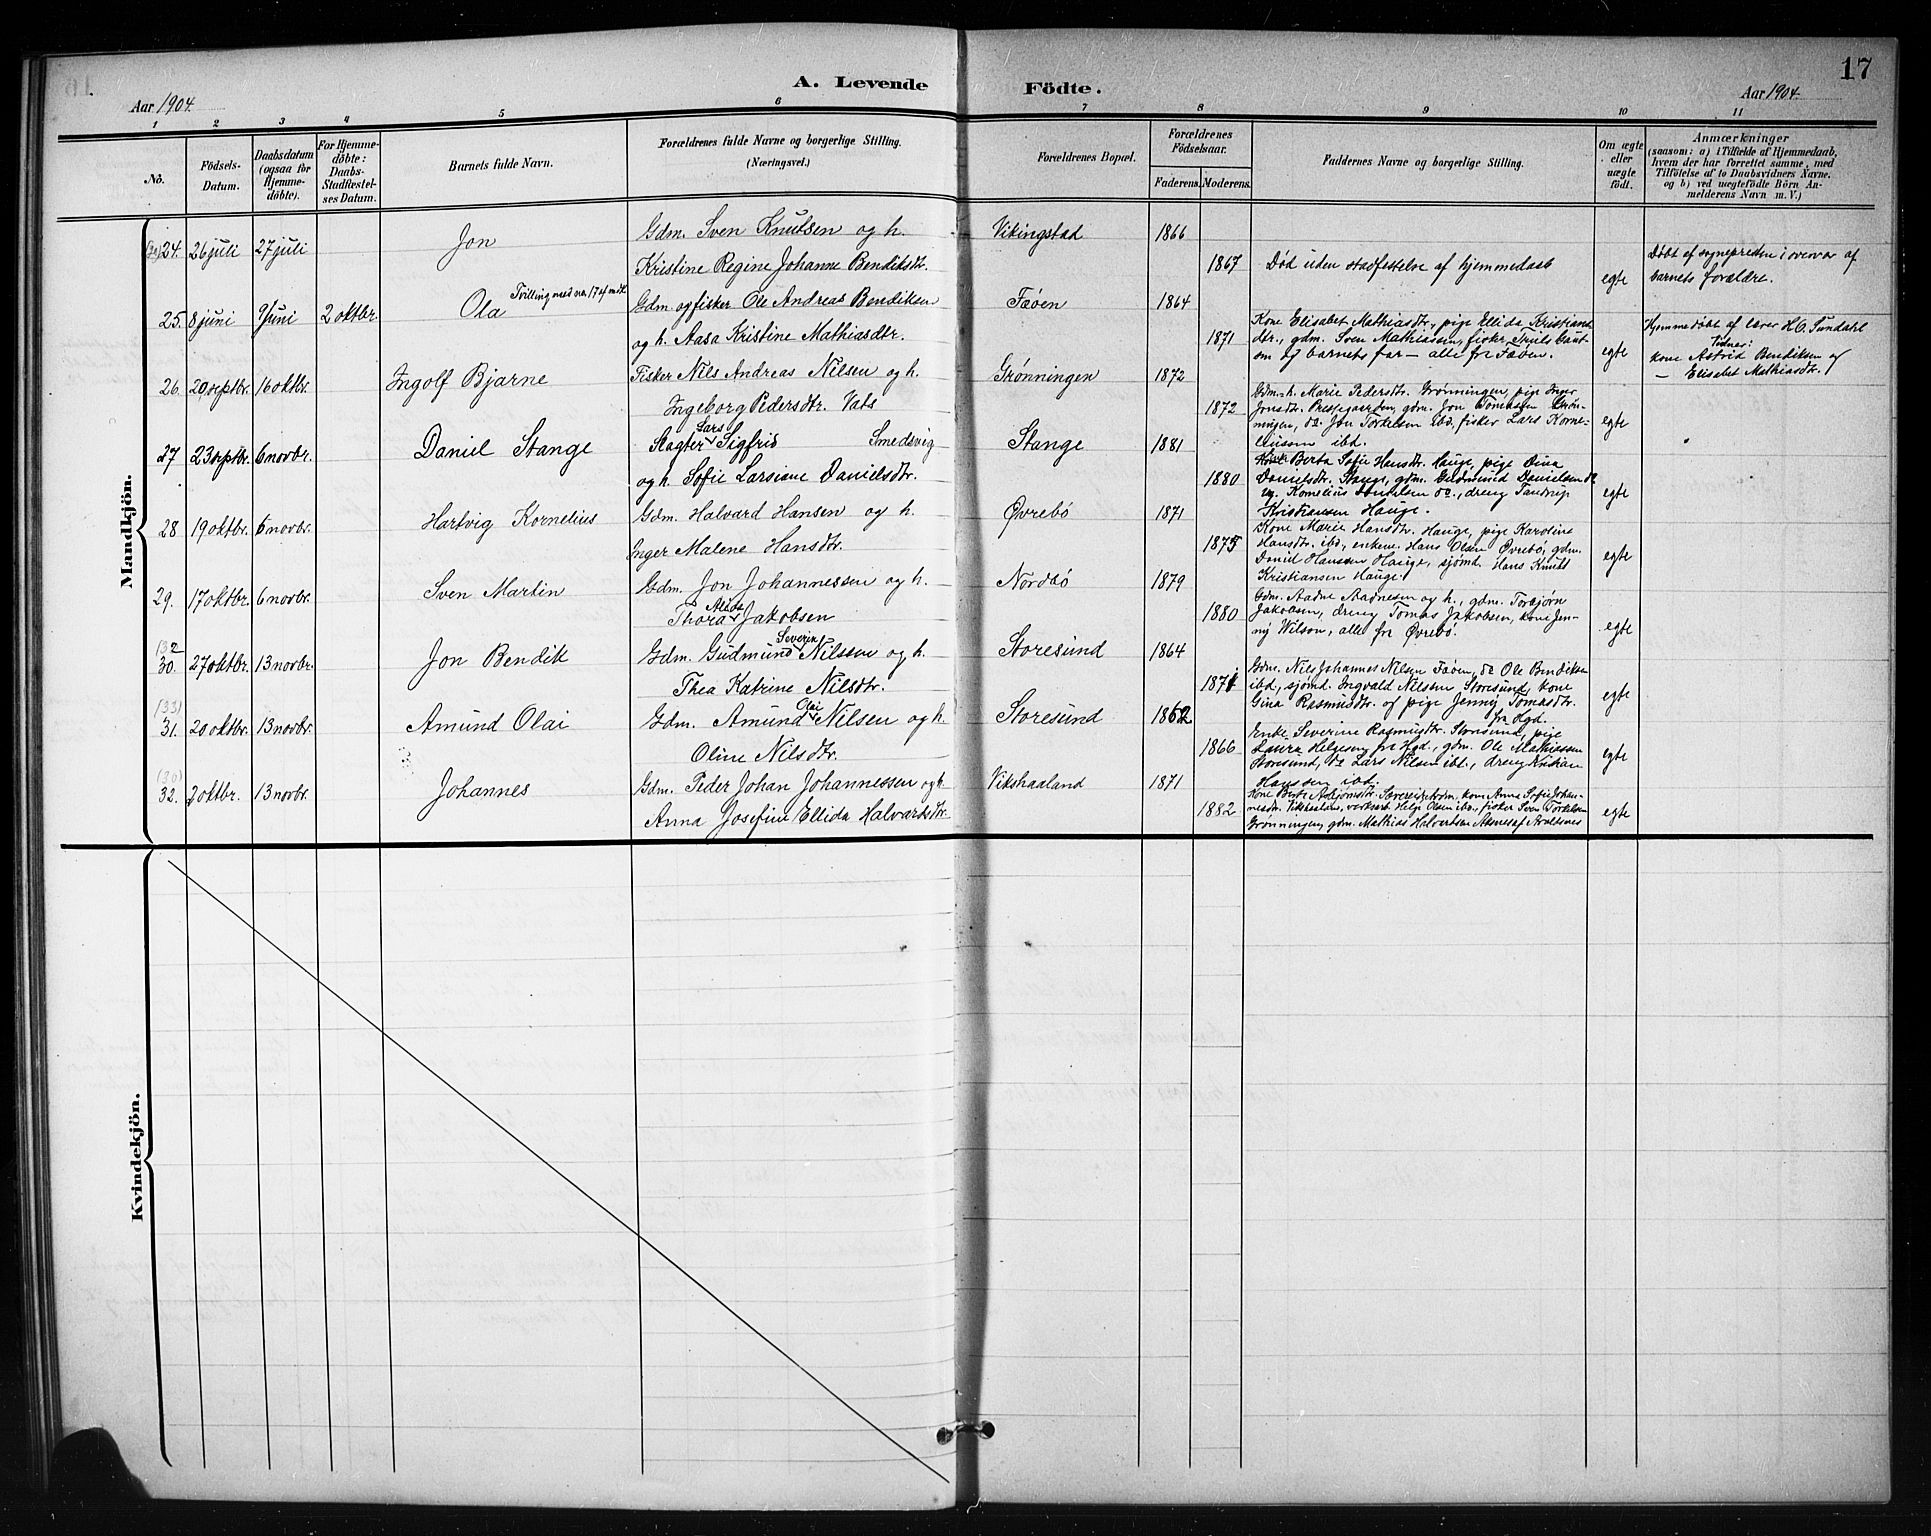 17
A. Levende Födte.
Aar 1904.
Aar 1904.
1 2 3 4 5 6 7 8 9 10 11
No.
Födsels-
Datum.
Daabsdatum
(ogsaa for
Hjemme-
døbte).
For Hjemme-
døbte:
Daabs-
Stadfæstel-
ses Datum.
Barnets fulde Navn.
Forældrenes fulde Navne og borgerlige Stilling.
(Næringsvei.)
Forældrenes Bopæl.
Forældrenes
Födselsaar.
Faderens. Moderens.
Faddernes Navne og borgerlige Stilling.
Om ægte
eller
uægte
födt.
Anmærkninger
(saasom: a) i Tilfælde af Hjemmedaab,
hvem der har forrettet samme, med
Tilföielse af to Daabsvidners Navne.
og b) ved uægtefödte Börn An-
melderens Navn m. V.)
Mandkjön.
24. 26 juli 27 juli Jon Gdm. Sven Knutsen og h. Vikingstad 1866
Kristine Regine Johanne Bendiksdtr. 1867 Død uden stadfestelse af hjemmedaab egte
Døbt af sognepresten i overvær af
barnets forældre.
25. 8 juni 9 juni 2 oktbr. Ola Tvilling med no. 17 af m.k. Gdm. og fisker Ole Andreas Bendiksen Føøen 1864
og h. Aasa Kristine Mathiasdtr. 1871 egte
Kone Elisabet Mathiasdtr., pige Ellida Kristians
dtr., gdm. Sven Mathiassen, fisker Truls Gaut-
som og barnets far — alle fr. Føøen.
Hjemmedøbt af lærer H. C. Sundahl
Vidner:
kone Astrid Bendiksen og
— Elisabet Mathiasdtr.
26. 20 septbr. 16 oktbr. Ingolf Bjarne Fisker Nils Andreas Nilsen og h. Grønningen 1872
Ingeborg Pedersdtr. Vats 1872 egte
Gdm. h. Marie Pedersdtr. Grønningen, pige Inger
Jonsdtr. Prestegaarden, gdm. Jon Tomassen Grøn-
ningen, do. Jon Torkelsen ibd., fisker Lars Korne-
liussen ibd.
27 23 septbr. 6 novbr. Daniel Stange Lars Sigfrid Smedsvig Stange 1881
og h. Sofie Larsine Danielsdtr. 1880 egte
Berta Sofie Hansdtr. Hauge, pige Dina
Danielsdtr. Stange, gdm. Gudmund Danielsen do
Kristiansen Hauge.
28 19 oktbr. 6 novbr. Hartvig Kornelius Gdm. Halvard Hansen og h. Øvrebö 1871
Inger Malene Hansdtr. 1875 egte
Kone Marie Hansdtr. Hauge, pige Karoline
Hansdtr. ibd., enkem. Hans Olsen Øvrebö, gdm.
Daniel Hanssen Hauge, sjömd. Hans Knut
Kristiansen Hauge.
29. 17 oktbr. 6 novbr. Sven Martin Gdm. Jon Johannessen og h. Nordbö 1879
Thora Jakobsen 1880 egte
Gdm. Aadne Aadnesen og h., gdm. Torbjørn
Jakobsen, dreng Tomas Jakobsen, kone Jen-
ny Wilson, alle fr. Øvrebö.
(32)
30. 27 oktbr. 13 novbr. Jon Bendik Gdm. Gudmund Severin Nilssen og h. Storesund 1864
Thea Katrine Nilsdtr. 1871 egte
Gdm. Nils Johannes Nilsen Føøen, do Ole Bendiksen
ibd., sjömd. Ingvald Nilssen Storesund, kone
Gina Rasmusdtr. og pige Jenny Tomasdtr.
fra Hgd.
(33)
31. 20 oktbr. 13 novbr. Amund Olai Gdm. Amund Olai Nilsen og h. Storesund 1862
Oline Nilsdtr. 1866 egte
Enke Severine Rasmusdtr. Storesund, pige
Laura Helgesen fr Hgd., gdm. Ole Mathiassen
Storesund, do Lars Nilsen ibd., dreng Kristian
Hanssen ibd.
(30)
32. 2 oktbr. 13 novbr. Johannes Gdm. Peder Johan Johannessen og h. Vikshaaland 1871
Anna Josefine Ellida Halvardsdtr. 1882 egte
Kone Anna Sofie Johan-
nesdtr. Vikshaaland, Helge Olsen ibd., fisker Sven Torkelsen
Grønningen, gdm. Mathias Halvardsen
Kvindekjön.